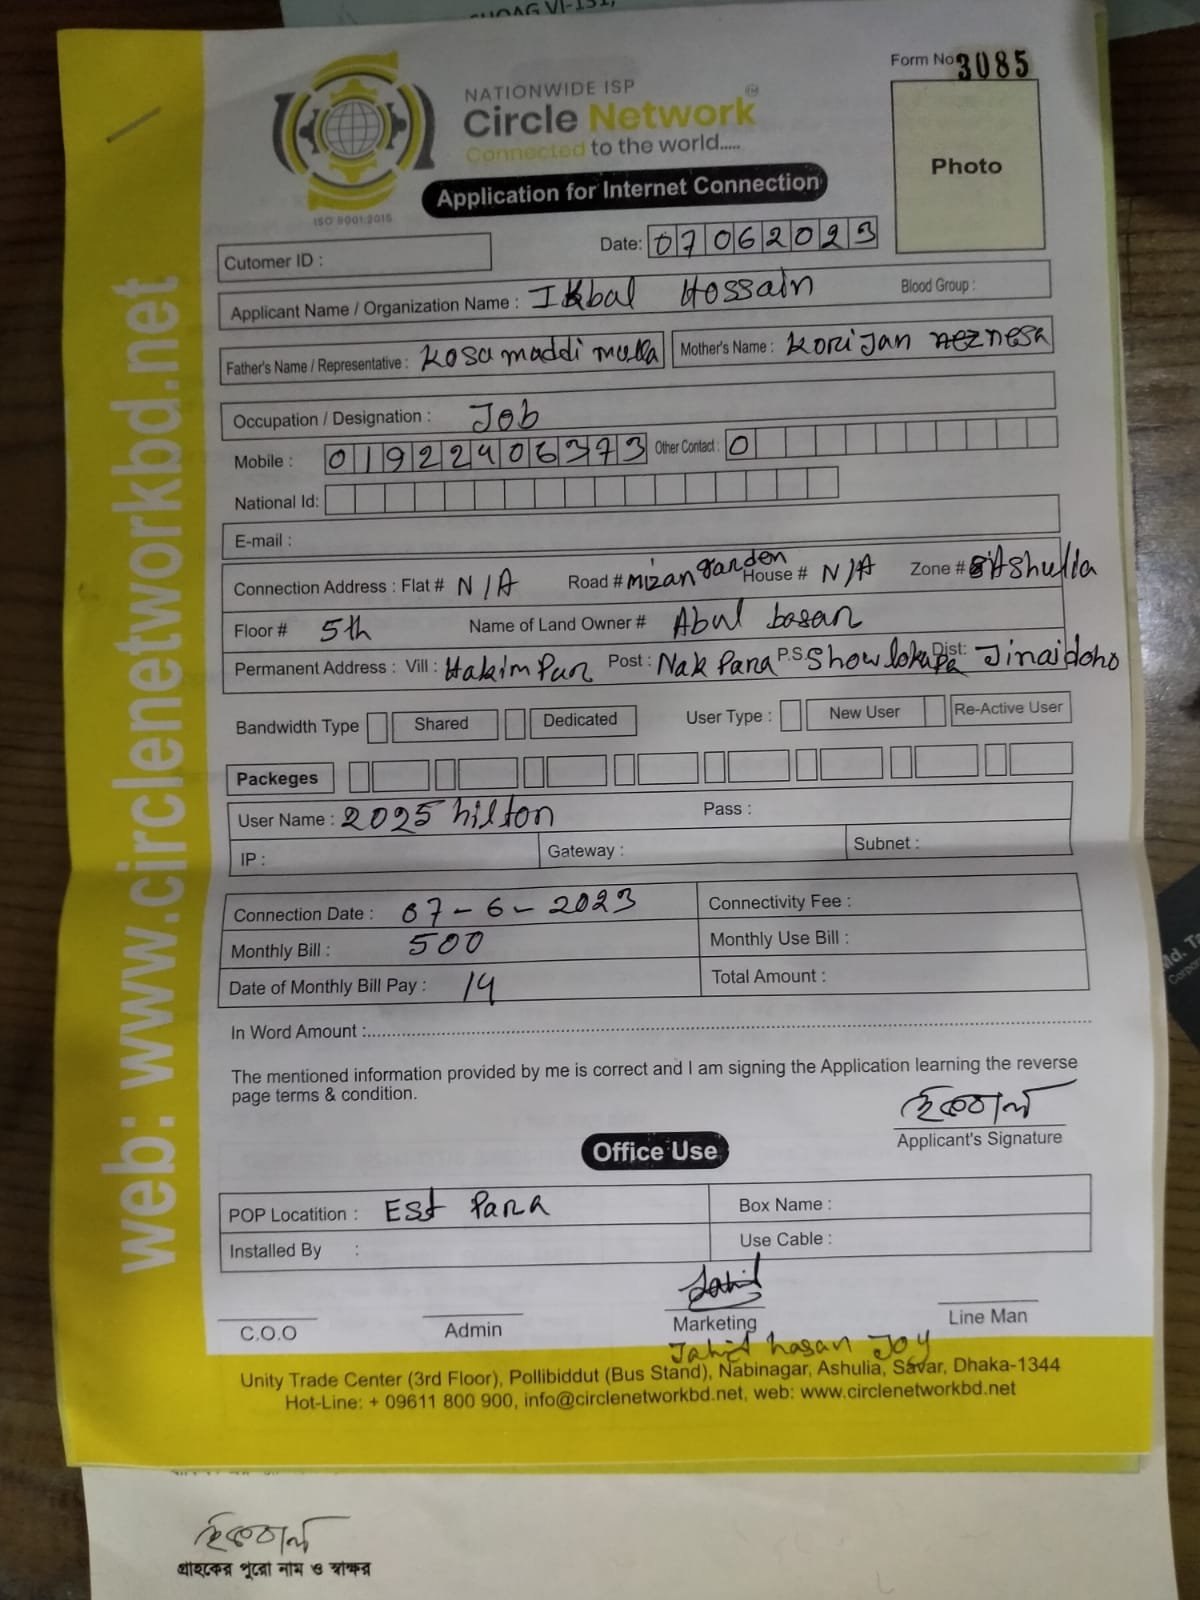 NATIONWIDE ISP
Circle Network
Connected to the world.....
ISO 9001:2015
Form No 3085
Photo
Application for Internet Connection
Cutomer ID :
Date: 07062023
Applicant Name / Organization Name : Ikbal Hossain Blood Group :
Father's Name / Representative : Kosu maddi mulla Mother's Name : Korijan neznesa
Occupation / Designation : Job
Mobile : 01922406373 Other Contact : 0
National Id:
E-mail :
Connection Address : Flat # N/A Road # mizan garden House # N/A Zone # Ashulia
Floor # 5th Name of Land Owner # Abul basar
Permanent Address : Vill : Hakimpur Post : Nak Para P.S. Showlokupa Dist: Jinaidoho
Bandwidth Type Shared Dedicated User Type : New User Re-Active User
Packeges
User Name : 2025 hilton Pass :
IP : Gateway : Subnet :
Connection Date : 07-6-2023 Connectivity Fee :
Monthly Bill : 500 Monthly Use Bill :
Date of Monthly Bill Pay : 14 Total Amount :
In Word Amount :
The mentioned information provided by me is correct and I am signing the Application learning the reverse
page terms & condition.
ইকবাল
Applicant's Signature
Office Use
POP Locatition : Est Para Box Name :
Installed By : Use Cable :
Jahid
C.O.O Admin Marketing Line Man
Jahid hasan Joy
Unity Trade Center (3rd Floor), Pollibiddut (Bus Stand), Nabinagar, Ashulia, Savar, Dhaka-1344
Hot-Line: + 09611 800 900, info@circlenetworkbd.net, web: www.circlenetworkbd.net
web: www.circlenetworkbd.net
ইকবাল
গ্রাহকের পুরো নাম ও স্বাক্ষর